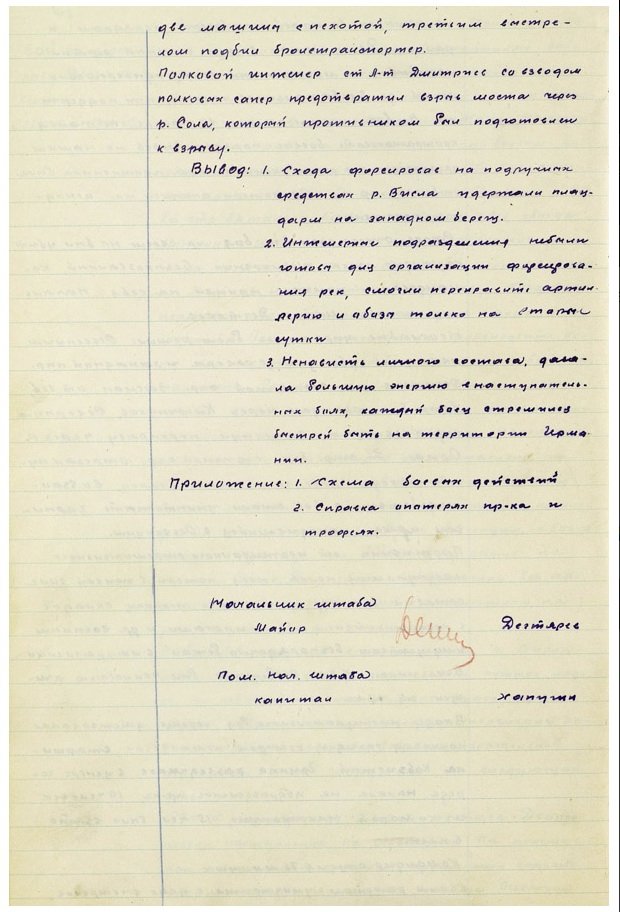 две машины с пехотой, третьим выстре-
лом подбил бронетранспортер.
Полковой инженер ст Л-т Дмитриев со взводом
полковых сапер предотвратил взрыв моста через
р. Сола, который противником был подготовлен
к взрыву.
Вывод: 1. Схода форсировав на подручных
средствах р. Висла удержали плац-
дарм на западном берегу.
2. Инженерные подразделения небыли
готовы для организации форсирова-
ния рек, смогли переправить артил-
лерию и обозы только на вторые
сутки
3. Ненависть личного состава, дава-
ла большую энергию в наступатель-
ных боях, каждый боец стремился
быстрей быть на территории Герма-
нии.
Приложение: 1. Схема боевых действий
2. Справка о потерях пр-ка и
трофеях.
Начальник штаба
Майор Дегтярев
Пом. Нач. штаба
капитан Хапугин